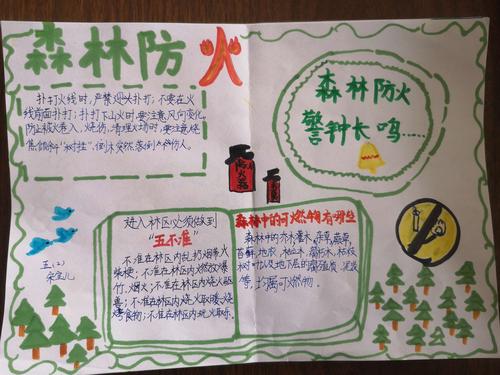 森林防火
扑打火线时,严禁迎火扑打;不要在火
线前面扑打;扑打下山火时,要注意风向变化,
防止被火卷入,烧伤,清理火场时,要注意烧
焦倾斜"树挂",倒木突然落倒伤人。
森林防火
警钟长鸣……
灭火器
进入林区必须做到
"五不准"
不准在林区内乱扔烟蒂火
柴梗;不准在林区内燃放爆
竹、烟火;不准在林区内烧火驱
兽;不准在林区内烧火取暖、烧
烤食物;不准在林区内玩火取乐。
森林中的可燃物有哪些
森林中的乔木灌木、杂草、蕨草、
苔藓、地衣、枯立木、腐朽木、枯枝
树叶以及地下层的腐殖质、泥炭
等,均属可燃物。
五(2)